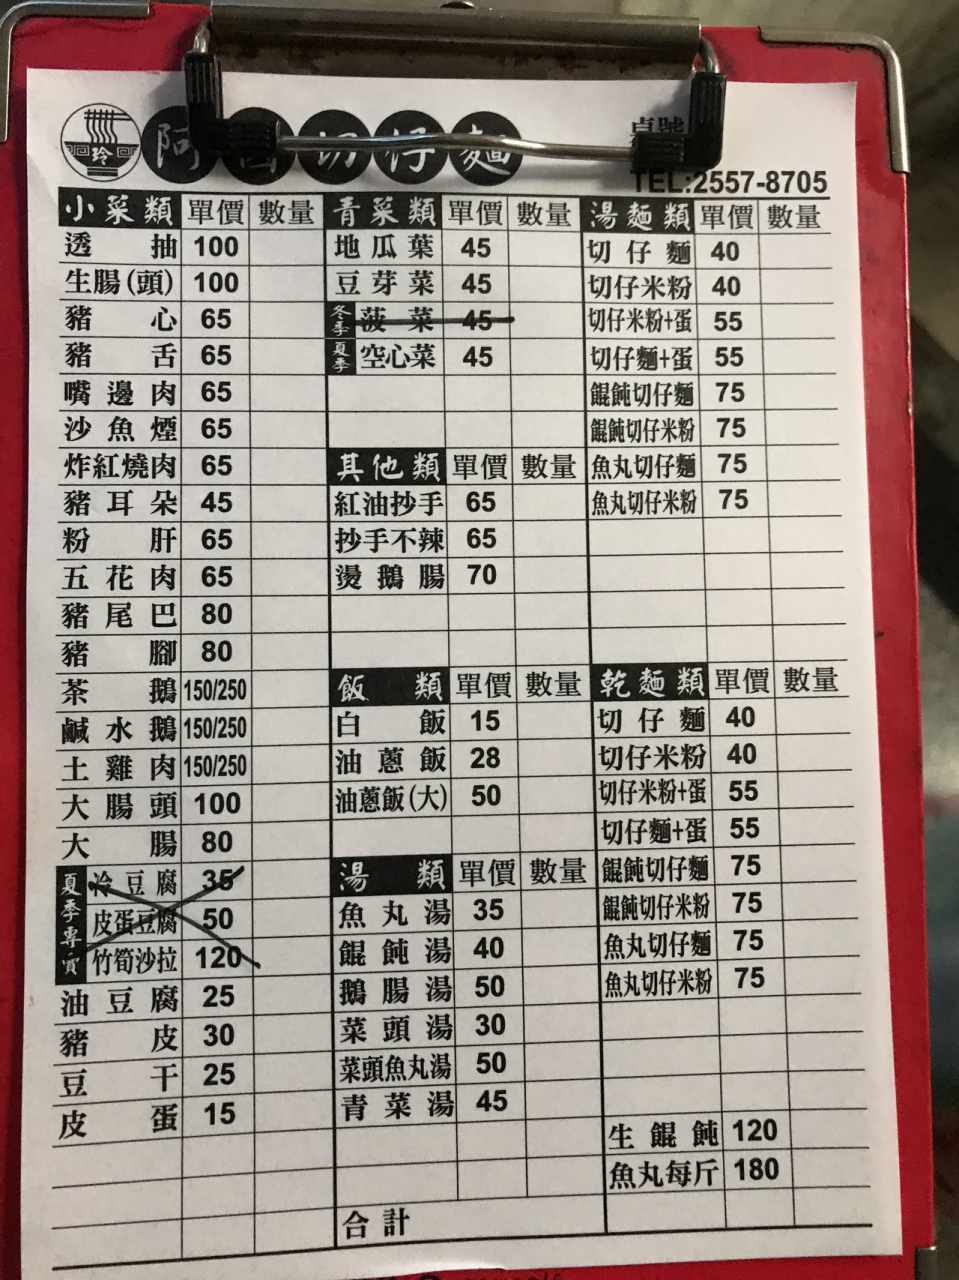 玲
阿 切仔麵
桌號
TEL:2557-8705
小菜類 單價 數量
透抽 100
生腸(頭) 100
豬心 65
豬舌 65
嘴邊肉 65
沙魚煙 65
炸紅燒肉 65
豬耳朵 45
粉肝 65
五花肉 65
豬尾巴 80
豬腳 80
茶鵝 150/250
鹹水鵝 150/250
土雞肉 150/250
大腸頭 100
大腸 80
夏季專賣
冷豆腐 35
皮蛋豆腐 50
竹筍沙拉 120
油豆腐 25
豬皮 30
豆干 25
皮蛋 15
青菜類 單價 數量
地瓜葉 45
豆芽菜 45
冬季 菠菜 45
夏季 空心菜 45
其他類 單價 數量
紅油抄手 65
抄手不辣 65
燙鵝腸 70
飯類 單價 數量
白飯 15
油蔥飯 28
油蔥飯(大) 50
湯類 單價 數量
魚丸湯 35
餛飩湯 40
鵝腸湯 50
菜頭湯 30
菜頭魚丸湯 50
青菜湯 45
合計
湯麵類 單價 數量
切仔麵 40
切仔米粉 40
切仔米粉+蛋 55
切仔麵+蛋 55
餛飩切仔麵 75
餛飩切仔米粉 75
魚丸切仔麵 75
魚丸切仔米粉 75
乾麵類 單價 數量
切仔麵 40
切仔米粉 40
切仔米粉+蛋 55
切仔麵+蛋 55
餛飩切仔麵 75
餛飩切仔米粉 75
魚丸切仔麵 75
魚丸切仔米粉 75
生餛飩 120
魚丸每斤 180